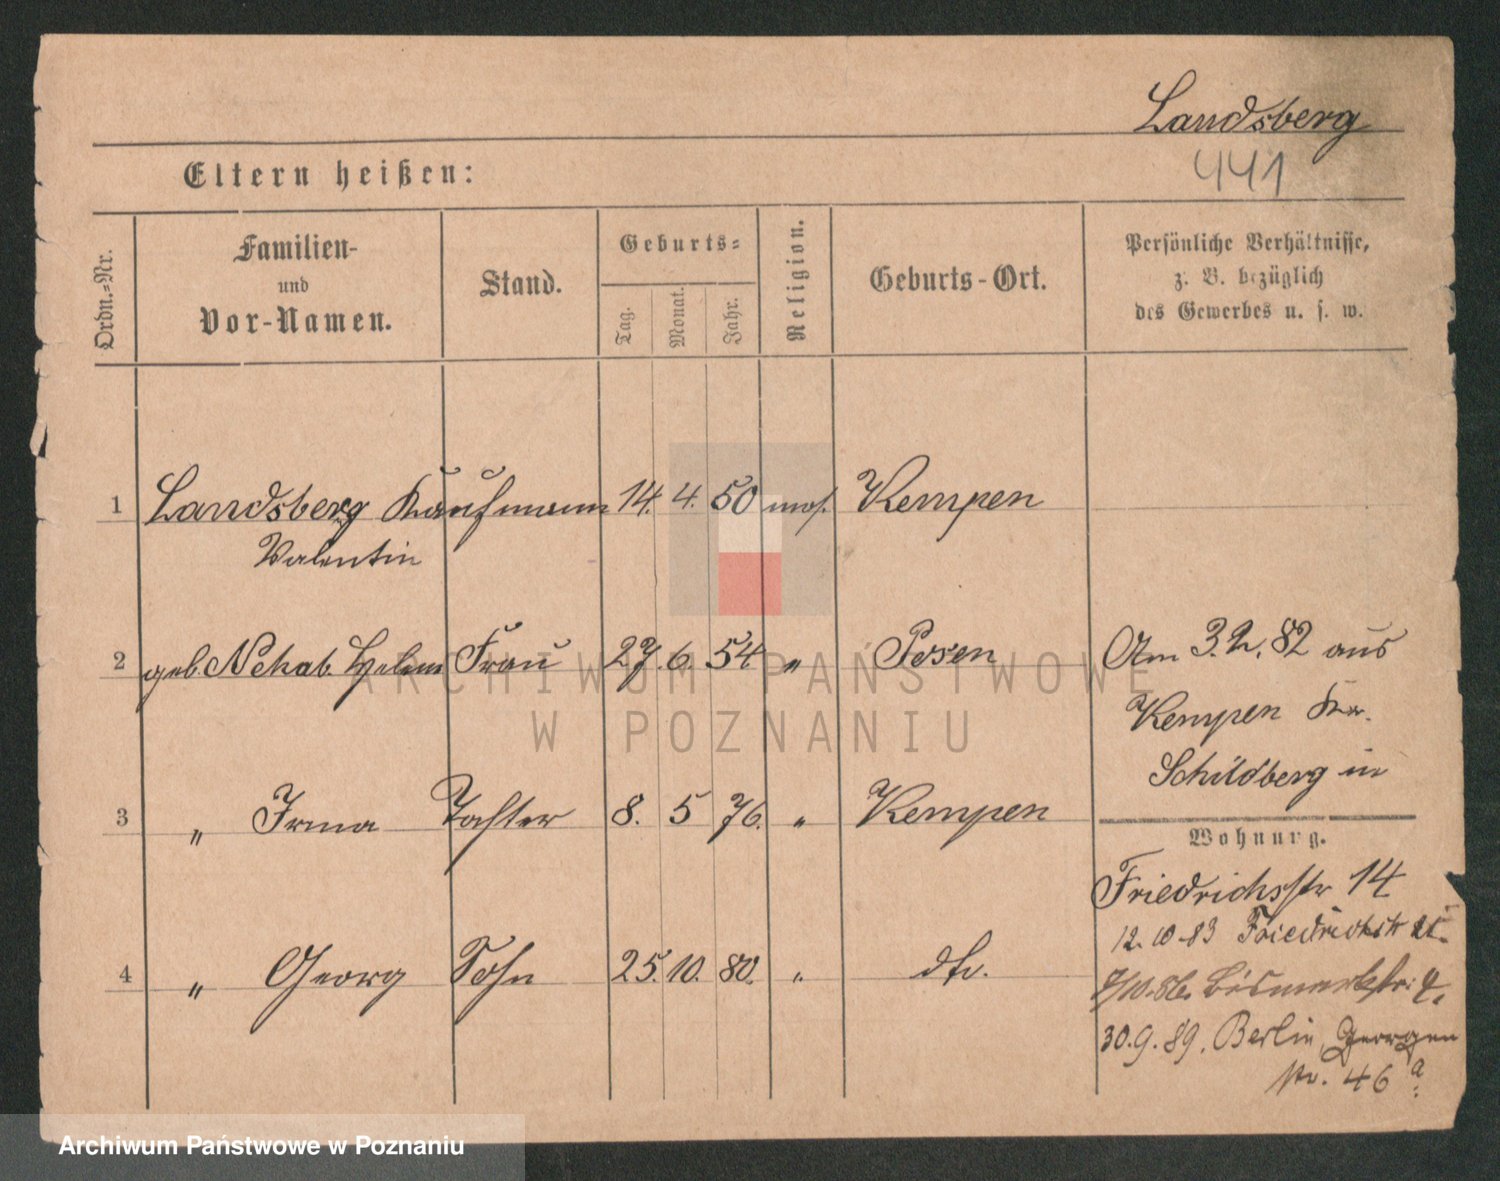 Landsberg
441
Eltern heißen:
Ordn.-Nr.
Familien-
und
Vor-Namen.
Stand.
Geburts-
Tag.
Monat.
Jahr.
Religion.
Geburts-Ort.
Persönliche Verhältnisse,
z. B. bezüglich
des Gewerbes u. s. w.
1 Landsberg Kaufmann 14. 4. 50 mos. Kempen
Valentin
2 geb. Nehab. Helene Frau 27. 6. 54 " Posen
Am 3. 2. 82 aus
Kempen Kr.
Schildberg in
3 " Irma Tochter 8. 5 76. " Kempen
4 " Georg Sohn 25. 10. 80. " dto.
Wohnung.
Friedrichsstr 14
12.10.83 Friedrichstr
7/10.86. Bismarkstr. 4.
30.9.89. Berlin, Georgen
str. 46 a.
ARCHIWUM PAŃSTWOWE
W POZNANIU
Archiwum Państwowe w Poznaniu